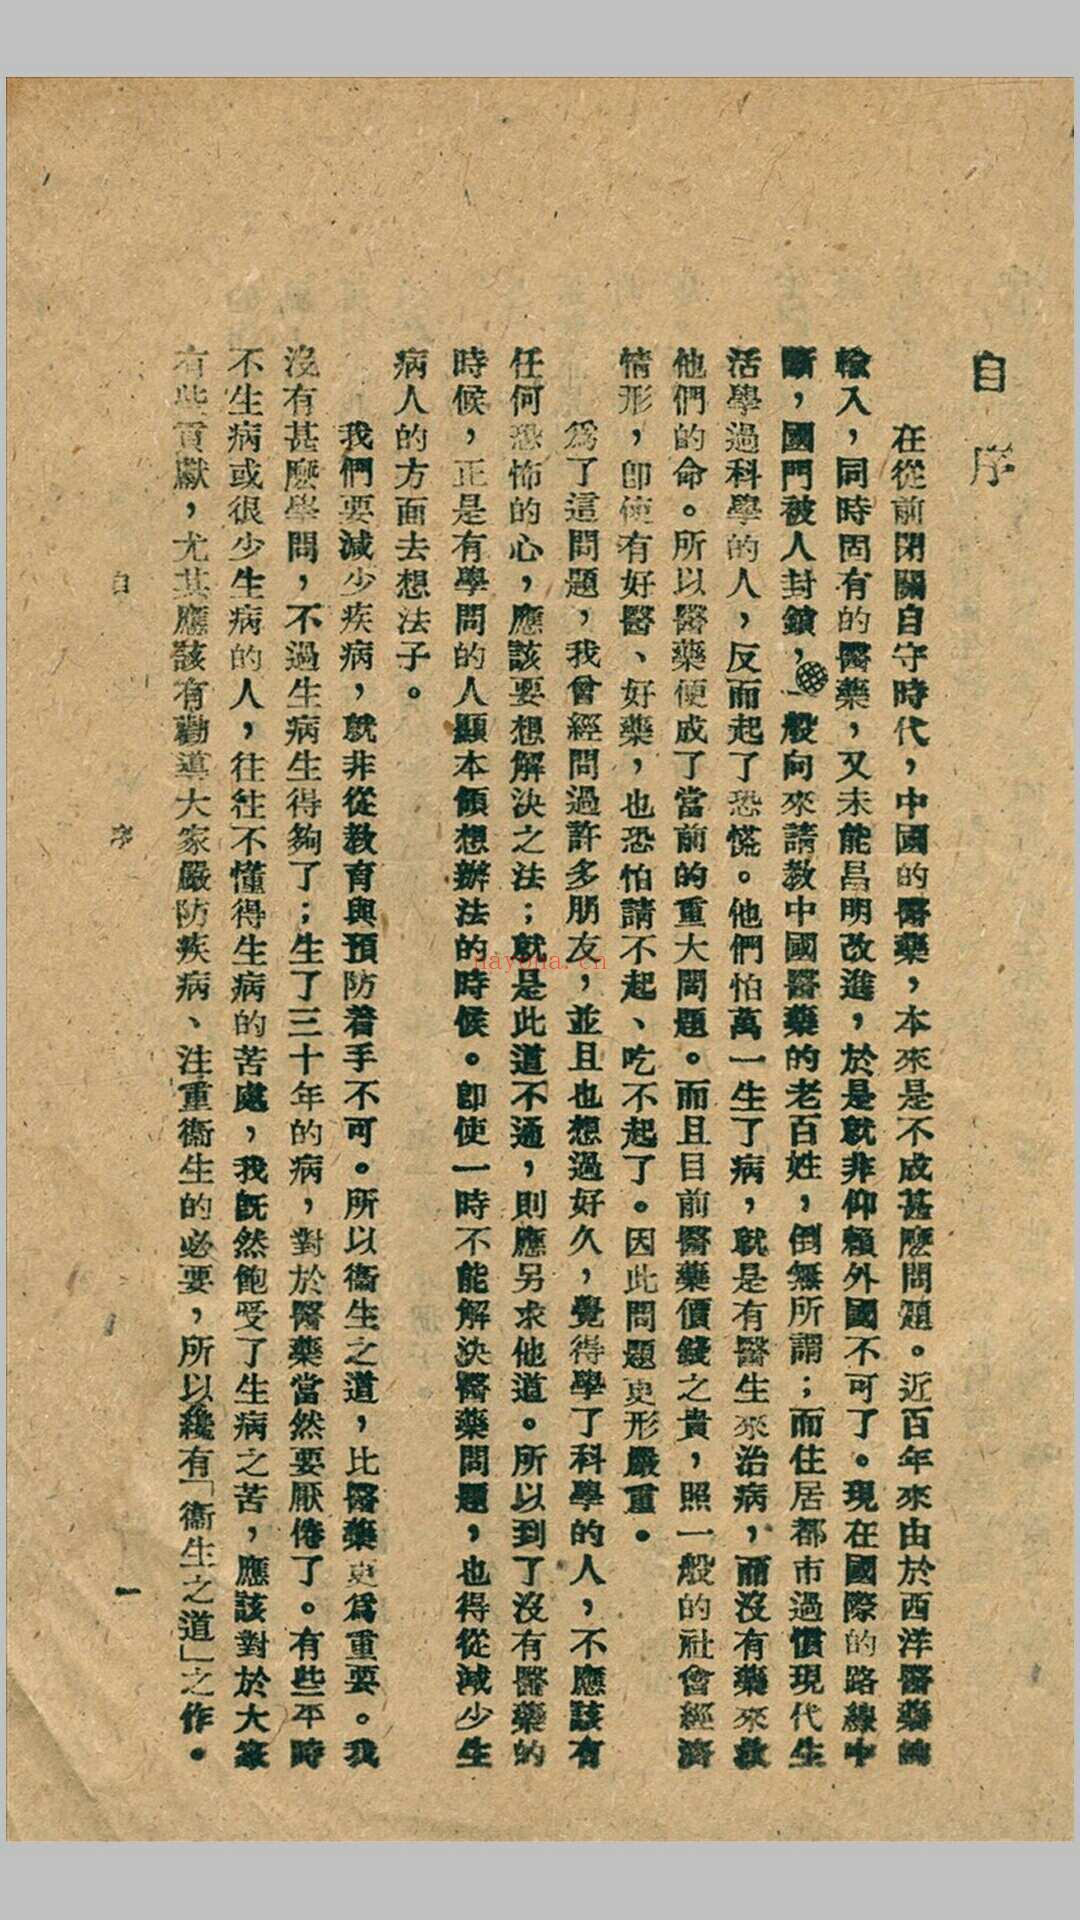 自序
在從前閉關自守時代，中國的醫藥，本來是不成甚麼問題。近百年來由於西洋醫藥的
輸入，同時固有的醫藥，又未能昌明改進，於是就非仰賴外國不可了。現在國際的路線中
斷，國門被人封鎖，一般向來請教中國醫藥的老百姓，倒無所謂；而住居都市過慣現代生
活學過科學的人，反而起了恐慌。他們怕萬一生了病，就是有醫生來治病，而沒有藥來救
他們的命。所以醫藥便成了當前的重大問題。而且目前醫藥價錢之貴，照一般的社會經濟
情形，卽使有好醫、好藥，也恐怕請不起、吃不起了。因此問題更形嚴重。
爲了這問題，我曾經問過許多朋友，並且也想過好久，覺得學了科學的人，不應該有
任何恐怖的心，應該要想解決之法；就是此道不通，則應另求他道。所以到了沒有醫藥的
時候，正是有學問的人顯本領想辦法的時候。卽使一時不能解決醫藥問題，也得從減少生
病人的方面去想法子。
我們要減少疾病，就非從教育與預防着手不可。所以衞生之道，比醫藥更爲重要。我
沒有甚麼學問，不過生病生得夠了；生了三十年的病，對於醫藥當然要厭倦了。有些平時
不生病或很少生病的人，往往不懂得生病的苦處，我旣然飽受了生病之苦，應該對於大家
有些貢獻，尤其應該有勸導大家嚴防疾病、注重衞生的必要，所以纔有「衞生之道」之作。
自序
一
nayona.cn